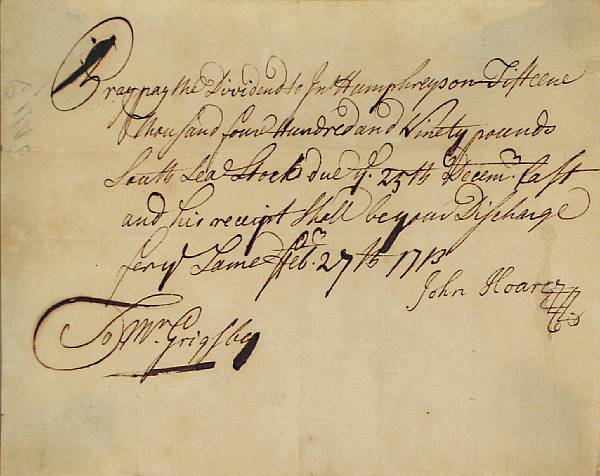 Pray pay the Dividend to Jnº Humphreys on Fifteene
Thousand four Hundred and Ninety pounds
South Sea Stock due yᵉ 25th Decemʳ last
and his receipt shall be your Discharge
for yᵉ Same Febʳ 27th 1713
John Hoare
To Mʳ Grigsby